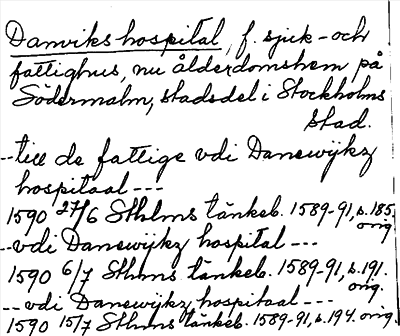 Danvikshospital, f. sjuk- och
fattighus, nu ålderdomshem på
Södermalm, stadsdel i Stockholms
stad.
--till de fattige vdi Danewijkz
hospitaal---
1590 27/6 Sthlms tänkeb. 1589-91, s. 185.
orig.
--vdi Danewijkz hospital---
1590 6/7 Sthlms tänkeb. 1589-91, s. 191.
orig.
--vdi Danewijkz hospitaal---
1590 15/7 Sthlms tänkeb. 1589-91, s. 194. orig.